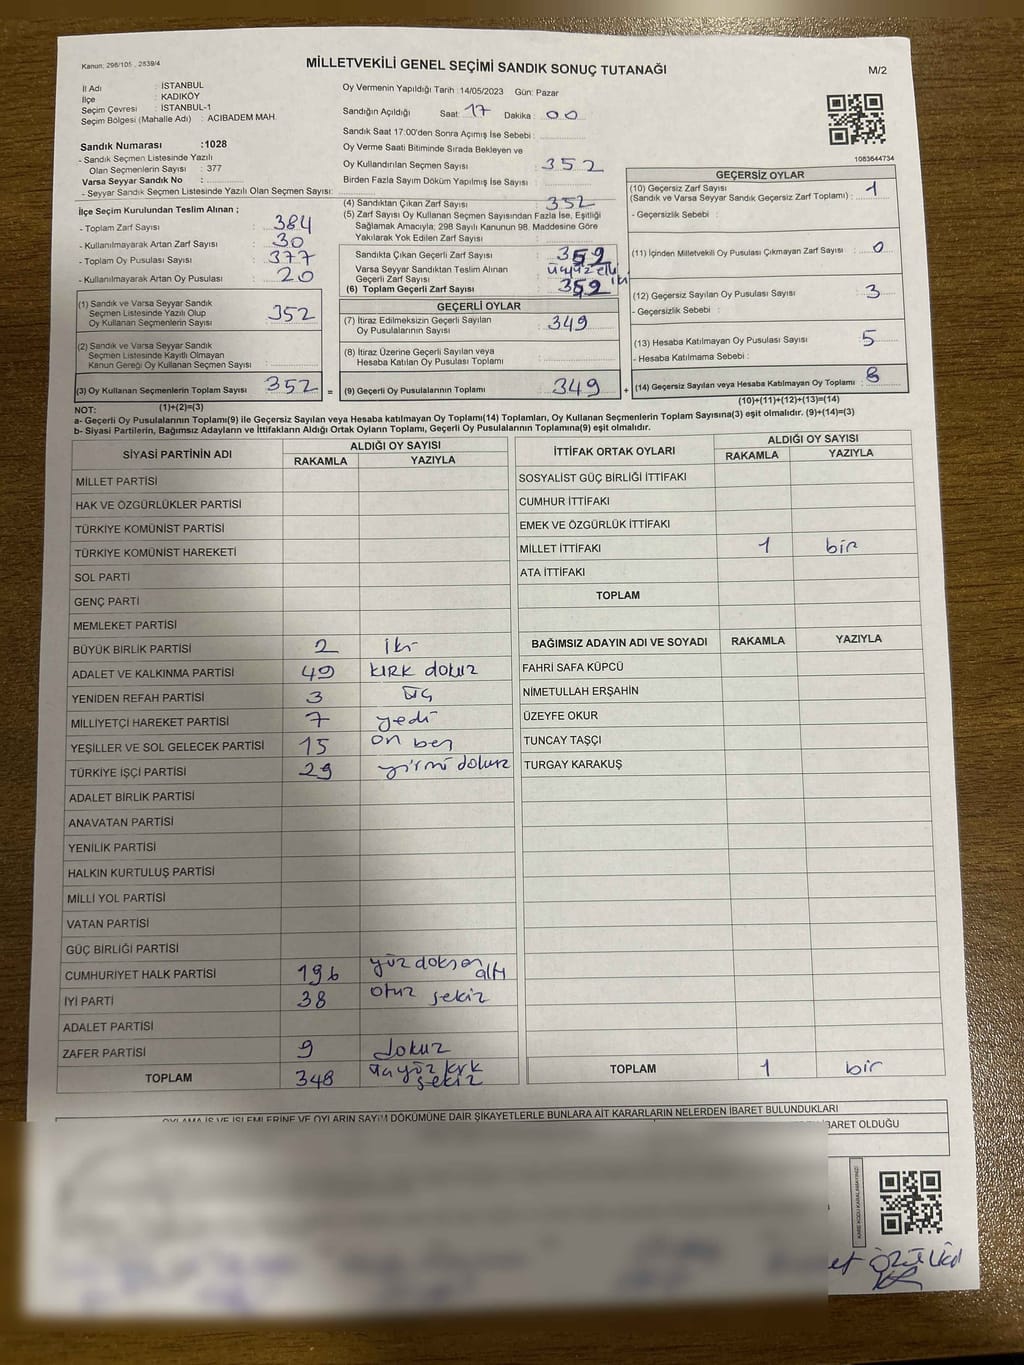 Kanun, 298/105 , 2839/4
MİLLETVEKİLİ GENEL SEÇİMİ SANDIK SONUÇ TUTANAĞI
M/2
İl Adı : İSTANBUL
İlçe : KADIKÖY
Seçim Çevresi : İSTANBUL-1
Seçim Bölgesi (Mahalle Adı) : ACIBADEM MAH.
Oy Vermenin Yapıldığı Tarih :14/05/2023 Gün: Pazar
Sandığın Açıldığı Saat: 17 Dakika : 00
Sandık Saat 17:00'den Sonra Açımış İse Sebebi :
Oy Verme Saati Bitiminde Sırada Bekleyen ve
Oy Kullandırılan Seçmen Sayısı : 352
Birden Fazla Sayım Döküm Yapılmış İse Sayısı :
1083644734
Sandık Numarası :1028
- Sandık Seçmen Listesinde Yazılı
Olan Seçmenlerin Sayısı : 377
Varsa Seyyar Sandık No :
- Seyyar Sandık Seçmen Listesinde Yazılı Olan Seçmen Sayısı:
İlçe Seçim Kurulundan Teslim Alınan ;
- Toplam Zarf Sayısı : 384
- Kullanılmayarak Artan Zarf Sayısı : 30
- Toplam Oy Pusulası Sayısı : 377
- Kullanılmayarak Artan Oy Pusulası : 20
(1) Sandık ve Varsa Seyyar Sandık
Seçmen Listesinde Yazılı Olup
Oy Kullanan Seçmenlerin Sayısı : 352
(2) Sandık ve Varsa Seyyar Sandık
Seçmen Listesinde Kayıtlı Olmayan
Kanun Gereği Oy Kullanan Seçmen Sayısı :
(3) Oy Kullanan Seçmenlerin Toplam Sayısı : 352 =
(1)+(2)=(3)
(4) Sandıktan Çıkan Zarf Sayısı : 352
(5) Zarf Sayısı Oy Kullanan Seçmen Sayısından Fazla İse, Eşitliği
Sağlamak Amacıyla; 298 Sayılı Kanunun 98. Maddesine Göre
Yakılarak Yok Edilen Zarf Sayısı :
Sandıkta Çıkan Geçerli Zarf Sayısı : 352
Varsa Seyyar Sandıktan Teslim Alınan
Geçerli Zarf Sayısı : üçyüz elli iki
(6) Toplam Geçerli Zarf Sayısı : 352
GEÇERLİ OYLAR
(7) İtiraz Edilmeksizin Geçerli Sayılan
Oy Pusulalarının Sayısı : 349
(8) İtiraz Üzerine Geçerli Sayılan veya
Hesaba Katılan Oy Pusulası Toplamı :
(9) Geçerli Oy Pusulalarının Toplamı : 349 +
GEÇERSİZ OYLAR
(10) Geçersiz Zarf Sayısı
(Sandık ve Varsa Seyyar Sandık Geçersiz Zarf Toplamı) : 1
- Geçersizlik Sebebi :
(11) İçinden Milletvekili Oy Pusulası Çıkmayan Zarf Sayısı : 0
(12) Geçersiz Sayılan Oy Pusulası Sayısı : 3
- Geçersizlik Sebebi :
(13) Hesaba Katılmayan Oy Pusulası Sayısı : 5
- Hesaba Katılmama Sebebi :
(14) Geçersiz Sayılan veya Hesaba Katılmayan Oy Toplamı : 8
(10)+(11)+(12)+(13)=(14)
NOT:
a- Geçerli Oy Pusulalarının Toplamı(9) ile Geçersiz Sayılan veya Hesaba katılmayan Oy Toplamı(14) Toplamları, Oy Kullanan Seçmenlerin Toplam Sayısına(3) eşit olmalıdır. (9)+(14)=(3)
b- Siyasi Partilerin, Bağımsız Adayların ve İttifakların Aldığı Ortak Oyların Toplamı, Geçerli Oy Pusulalarının Toplamına(9) eşit olmalıdır.
SİYASİ PARTİNİN ADI ALDIĞI OY SAYISI
RAKAMLA YAZIYLA
MİLLET PARTİSİ
HAK VE ÖZGÜRLÜKLER PARTİSİ
TÜRKİYE KOMÜNİST PARTİSİ
TÜRKİYE KOMÜNİST HAREKETİ
SOL PARTİ
GENÇ PARTİ
MEMLEKET PARTİSİ
BÜYÜK BİRLİK PARTİSİ 2 iki
ADALET VE KALKINMA PARTİSİ 49 kırk dokuz
YENİDEN REFAH PARTİSİ 3 üç
MİLLİYETÇİ HAREKET PARTİSİ 7 yedi
YEŞİLLER VE SOL GELECEK PARTİSİ 15 on beş
TÜRKİYE İŞÇİ PARTİSİ 29 yirmi dokuz
ADALET BİRLİK PARTİSİ
ANAVATAN PARTİSİ
YENİLİK PARTİSİ
HALKIN KURTULUŞ PARTİSİ
MİLLİ YOL PARTİSİ
VATAN PARTİSİ
GÜÇ BİRLİĞİ PARTİSİ
CUMHURİYET HALK PARTİSİ 196 yüz doksan altı
İYİ PARTİ 38 otuz sekiz
ADALET PARTİSİ
ZAFER PARTİSİ 9 dokuz
TOPLAM 348 üçyüz kırk sekiz
İTTİFAK ORTAK OYLARI ALDIĞI OY SAYISI
RAKAMLA YAZIYLA
SOSYALİST GÜÇ BİRLİĞİ İTTİFAKI
CUMHUR İTTİFAKI
EMEK VE ÖZGÜRLÜK İTTİFAKI
MİLLET İTTİFAKI 1 bir
ATA İTTİFAKI
TOPLAM
BAĞIMSIZ ADAYIN ADI VE SOYADI RAKAMLA YAZIYLA
FAHRİ SAFA KÜPCÜ
NİMETULLAH ERŞAHİN
ÜZEYFE OKUR
TUNCAY TAŞÇI
TURGAY KARAKUŞ
TOPLAM 1 bir
OYLAMA İŞ VE İŞLEMLERİNE VE OYLARIN SAYIM DÖKÜMÜNE DAİR ŞİKAYETLERLE BUNLARA AİT KARARLARIN NELERDEN İBARET BULUNDUKLARI
İBARET OLDUĞU
KARE KODU KARALAMAYINIZ!